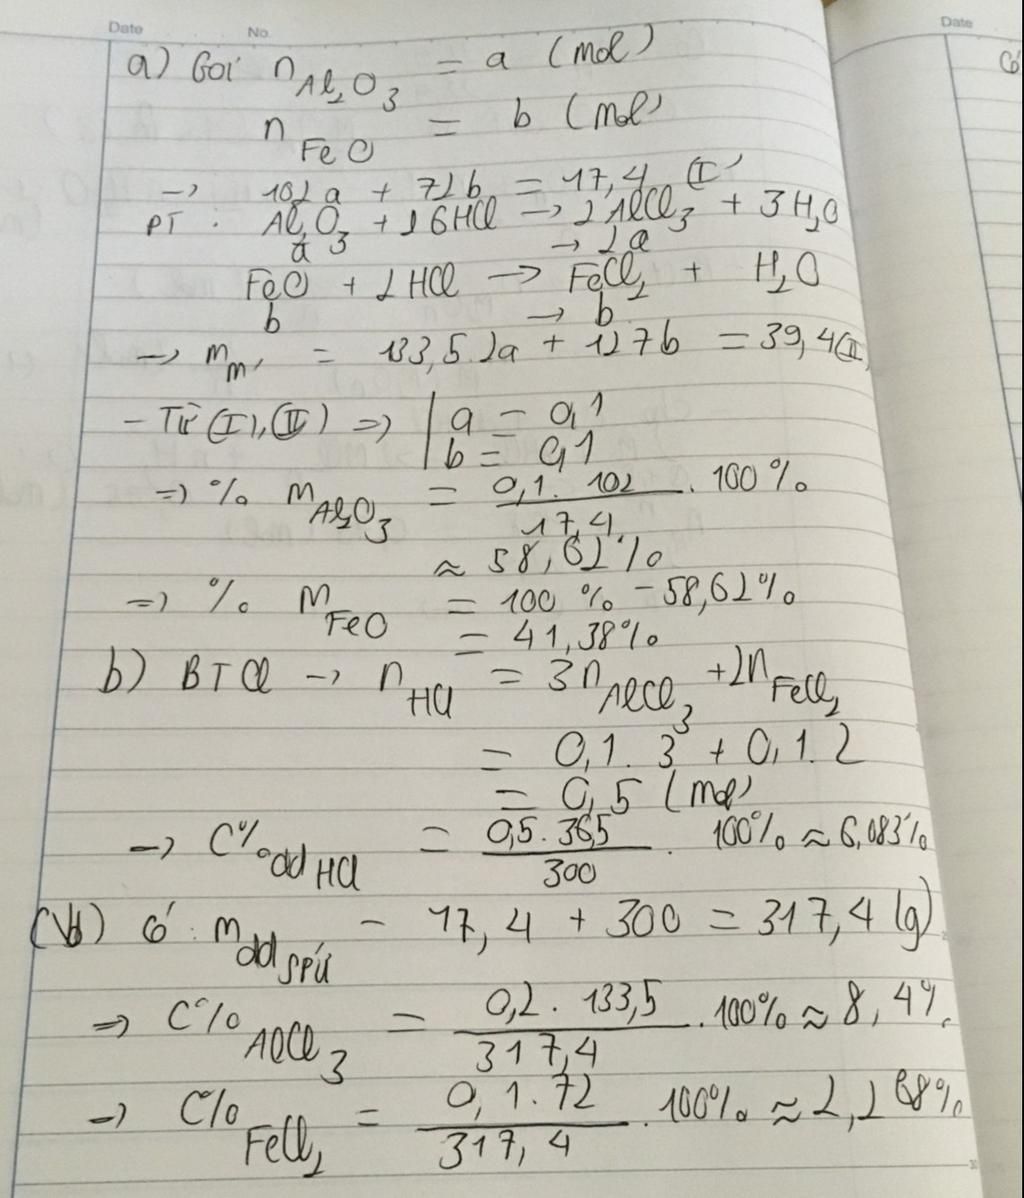 Date No. Date
a) Gọi n Al₂O₃ = a (mol)
n FeO = b (mol)
→ 102a + 72b = 17,4 (I)
PT : Al₂O₃ + 6HCl → 2AlCl₃ + 3H₂O
a → 2a
FeO + 2HCl → FeCl₂ + H₂O
b → b
→ m m' = 133,5.2a + 127b = 39,4 (II)
- Từ (I), (II) => | a = 0,1
b = 0,1
=> % m Al₂O₃ = 0,1. 102 / 17,4 . 100 %
≈ 58,62%
=> % m FeO = 100 % - 58,62%
= 41,38%
b) BTCl → n HCl = 3n AlCl₃ + 2n FeCl₂
= 0,1. 3 + 0,1. 2
= 0,5 (mol)
→ C% dd HCl = 0,5. 36,5 / 300 . 100% ≈ 6,083%
có : m dd SPƯ = 17,4 + 300 = 317,4 (g)
=> C% AlCl₃ = 0,2. 133,5 / 317,4 . 100% ≈ 8,4%
→ C% FeCl₂ = 0,1. 72 / 317,4 . 100% ≈ 2,268%